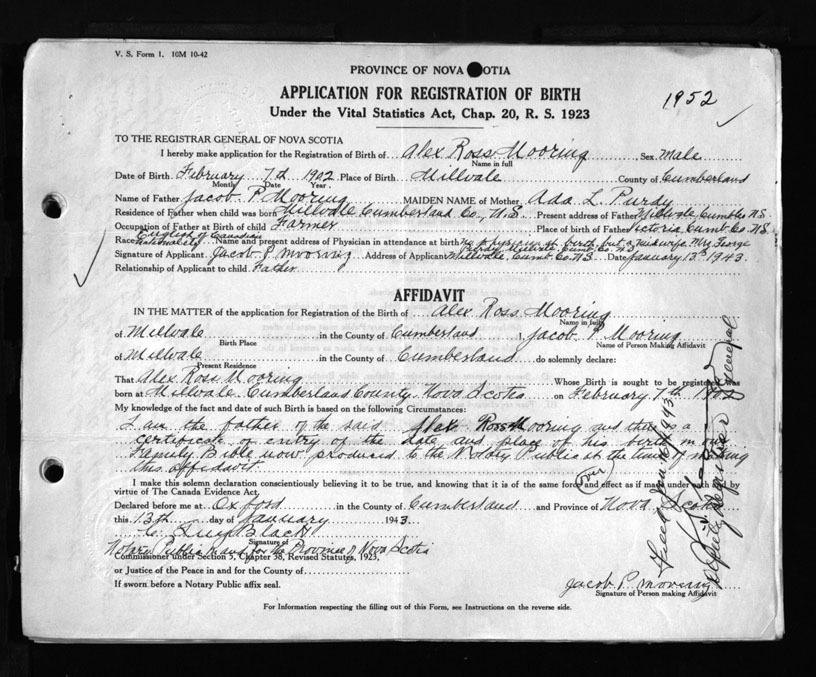 V. S. Form 1. 10M 10-42
PROVINCE OF NOVA SCOTIA
APPLICATION FOR REGISTRATION OF BIRTH
1952
Under the Vital Statistics Act, Chap. 20, R. S. 1923
TO THE REGISTRAR GENERAL OF NOVA SCOTIA
I hereby make application for the Registration of Birth of Alex Ross Mooring Sex Male
Name in full
Date of Birth February 7th 1902 Place of Birth Millvale County of Cumberland
Month Date Year
Name of Father Jacob P. Mooring MAIDEN NAME of Mother Ada L. Purdy
Residence of Father when child was born Millvale Cumberland Co., N.S. Present address of Father Millvale, Cumb Co N.S.
Occupation of Father at Birth of child Farmer Place of birth of Father Victoria, Cumb. Co. N.S.
English of Canadian
Race Nationality Name and present address of Physician in attendance at birth no physician at birth but a midwife Mrs George
Purdy, Millvale, Cumb. Co. N.S.
Signature of Applicant Jacob P. Mooring Address of Applicant Millvale, Cumb. Co. N.S. Date January 13th 1943.
Relationship of Applicant to child Father
AFFIDAVIT
IN THE MATTER of the application for Registration of the Birth of Alex Ross Mooring
Name in full
of Millvale in the County of Cumberland I, Jacob P. Mooring
Birth Place Name of Person Making Affidavit
of Millvale in the County of Cumberland do solemnly declare:
Present Residence
That Alex Ross Mooring Whose Birth is sought to be registered was
born at Millvale Cumberland County, Nova Scotia on February 7th 1902
My knowledge of the fact and date of such Birth is based on the following Circumstances:
I am the father of the said Alex Ross Mooring and there is a
certificate or entry of the date and place of his birth in our
Family Bible now produced to the Notary Public at the time of making
this affidavit
(over)
I make this solemn declaration conscientiously believing it to be true, and knowing that it is of the same force and effect as if made under oath by
virtue of The Canada Evidence Act.
Declared before me at Oxford in the County of Cumberland and Province of Nova Scotia
this 13th day of January 1943.
Black
Signature of
Notary Public in and for the Province of Nova Scotia
Commissioner under Section 5, Chapter 38, Revised Statutes, 1923,
or Justice of the Peace in and for the County of
If sworn before a Notary Public affix seal.
Jacob P. Mooring
Signature of Person making Affidavit
For Information respecting the filling out of this Form, see Instructions on the reverse side.
Filed 1943
Deputy Registrar General